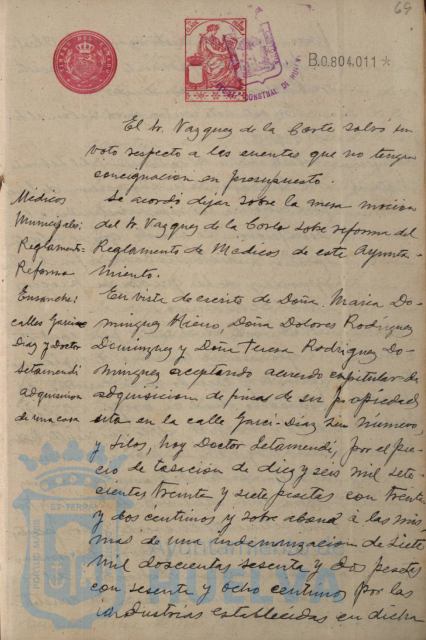 69
B.0.804.011*
El Sr. Vazquez de la Corte salvó su
voto respecto a las cuentas que no tengan
consignación en presupuesto.
Médicos
Municipales
Reglamento
Reforma
Se acordó dejar sobre la mesa moción
del Sr. Vazquez de la Corte sobre reforma del
Reglamento de Médicos de este Ayunta-
miento.
Ensanche
calles Garci
Diaz y Doctor
Letamendi
adquisicion
de una casa
En vista de escrito de Doña Maria Do-
minguez Doña Dolores Rodriguez
Dominguez y Doña Teresa Rodriguez Do-
minguez aceptando acuerdo capitular de
adquisicion de finca de su propiedad
sita en la calle Garci-Diaz sin numero,
y Silos, hoy Doctor Letamendi, por el pre-
cio de tasación de diez y seis mil sete-
cientas treinta y siete pesetas con treinta
y dos centimos y sobre abono á las mis-
mas de una indemnizacion de siete
mil doscientas sesenta y dos pesetas
con sesenta y ocho centimos por las
industrias establecidas en dicha
Ayuntamiento de
HUELVA